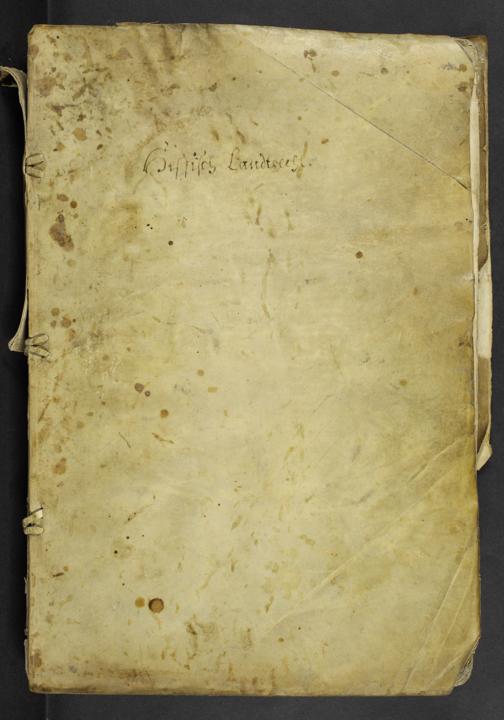 Hissisch Landtrecht.